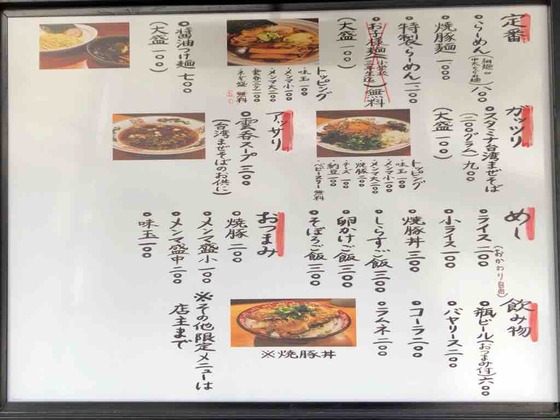 定番
・らーめん 八〇〇
・焼豚麺 一〇〇〇
・特製らーめん 一一〇〇
お子様麺 無料
(大盛 一〇〇)
トッピング
・味玉 一〇〇
・メンマ小 一〇〇
・メンマ大 二〇〇
・ネギ盛 無料
・醤油つけ麺 七〇〇
(大盛 一〇〇)
ガッツリ
・スタミナ台湾まぜそば
(二〇〇グラム) 九〇〇
(大盛 一〇〇)
トッピング
・味玉 一〇〇
・メンマ小 一〇〇
・メンマ大 二〇〇
・チーズ 一〇〇
・納豆 一〇〇
・ベビースター 無料
アッサリ
・雲呑スープ 三〇〇
(台湾まぜそばのお供に)
めし
・ライス 二〇〇
(おかわり自由)
・小ライス 一〇〇
・焼豚丼 三〇〇
・しらすご飯 三〇〇
・卵かけご飯 三〇〇
・そぼろご飯 三〇〇
おつまみ
・焼豚 二〇〇
・メンマ盛小 一〇〇
・メンマ盛中 二〇〇
・味玉 一〇〇
飲み物
・瓶ビール(おつまみ付) 六〇〇
・バヤリース 二〇〇
・コーラ 二〇〇
・ラムネ 二〇〇
※焼豚丼
※その他限定メニューは
店主まで